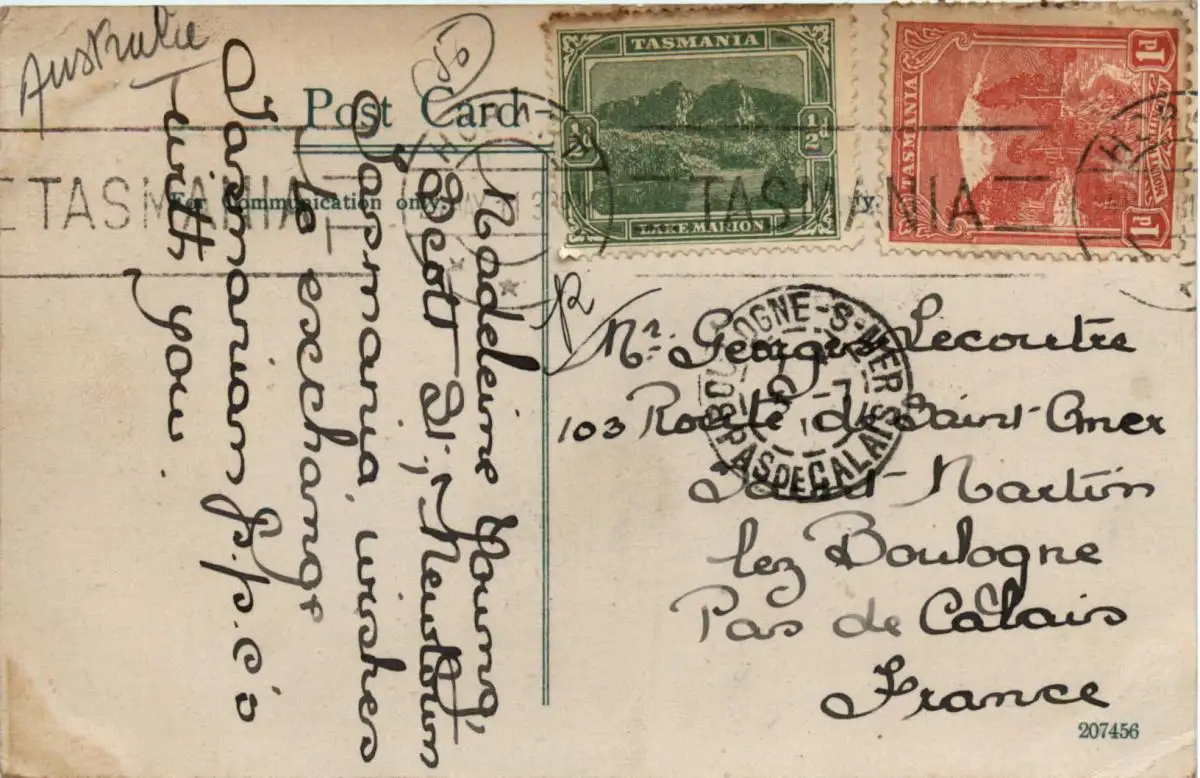 Australie
Post Card
For Communication only.
TASMANIA
TASMANIA
TASMANIA
½d
½d
LAKE MARION
TASMANIA
Pd 1
Pd 1
BOULOGNE-S-MER
PAS DE CALAIS
Madeleine Young,
Scott St., Newtown
Tasmania, wishes
to exchange
Tasmanian p.p.c's
with you.
Mr. Georges Lecoutre
103 Route de Saint-Omer
Saint-Martin
lez Boulogne
Pas de Calais
France
207456